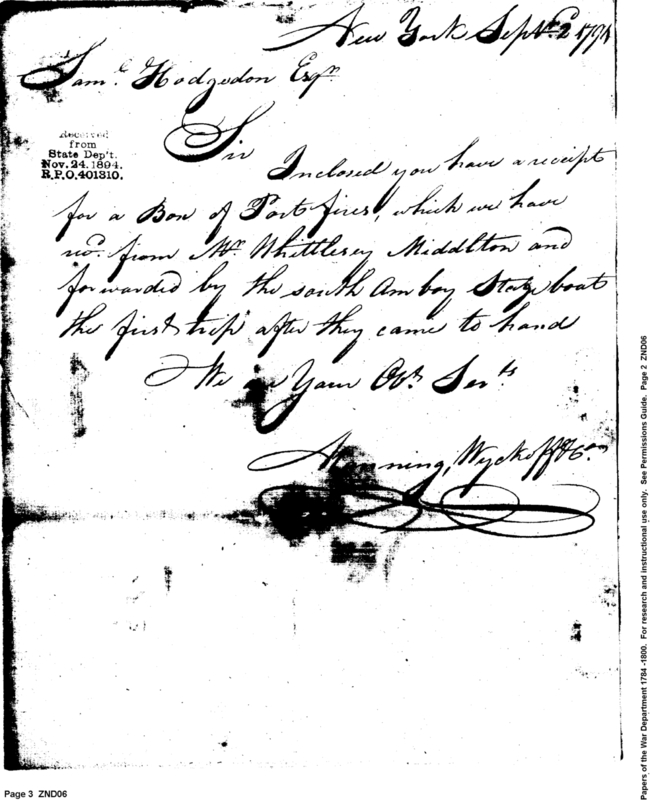 New York Septr. 2d 1794
Saml. Hodgsdon Esqr.
Received
from
State Dep't.
Nov. 24. 1894.
R.P.O. 401310.
Sir
Inclosed you have a receipt
for a Box of Port fires, which we have
recd. from Mr. Whittlesey Middlton and
forwarded by the south Amboy Stage boat
the first trip after they came to hand
We are Your Obt. Servts
Manning, Wyckoff & Co.
Papers of the War Department 1784 -1800. For research and instructional use only. See Permissions Guide. Page 2 ZND06
Page 3 ZND06